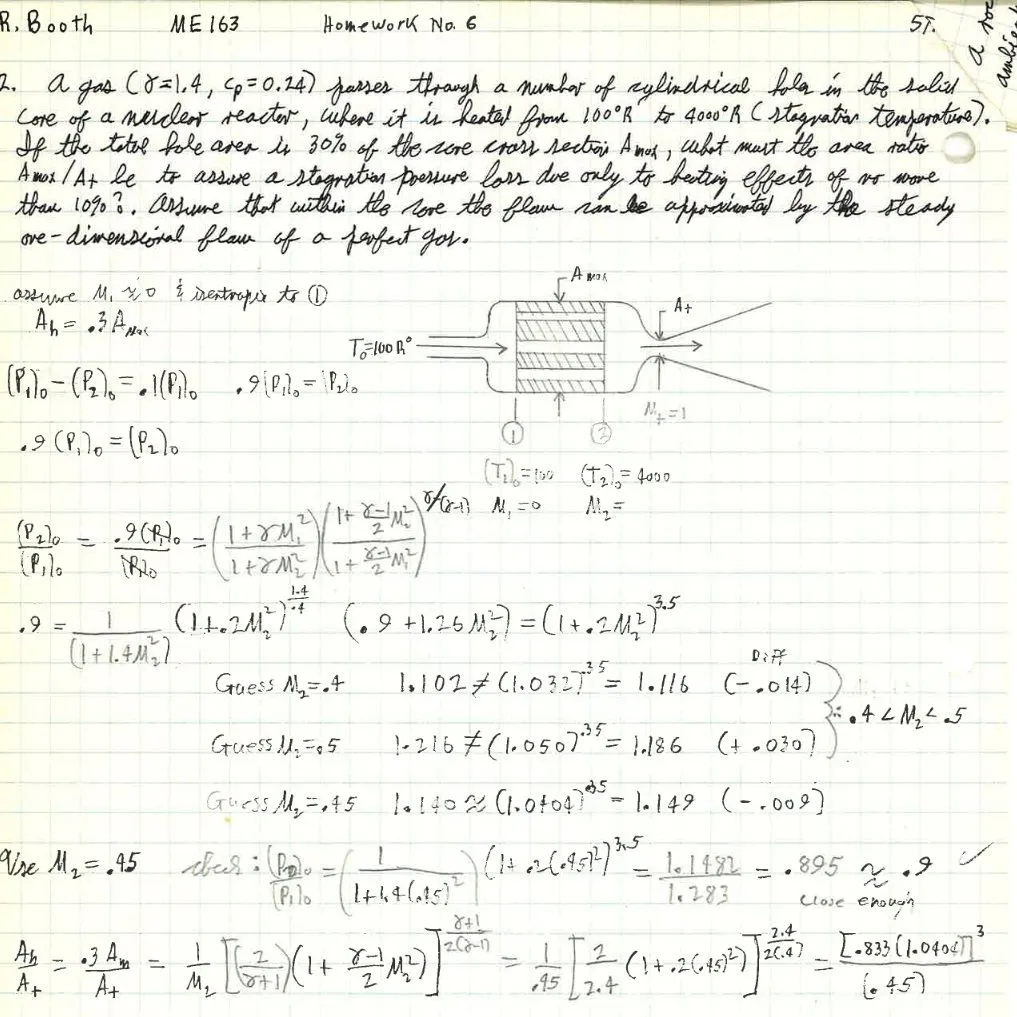 R. Booth ME 163 Homework No. 6 5T.
a roc
ambien
2. A gas (γ=1.4, cp=0.24) passes through a number of cylindrical holes in the solid
core of a nuclear reactor, where it is heated from 100°R to 4000°R (stagnation temperature).
If the total hole area is 30% of the core cross section Amax, what must the area ratio
Amax/A+ be to assure a stagnation pressure loss due only to heating effects of no more
than 10%?. Assume that within the core the flow can be approximated by the steady
one-dimensional flow of a perfect gas.
assume M₁ ≈ 0 & isentropic to ①
Ah = .3 Amax
Amax
A+
T₀=100R°
(P₁)₀ - (P₂)₀ = .1(P₁)₀ .9(P₁)₀ = (P₂)₀
M+=1
① ②
.9 (P₁)₀ = (P₂)₀
(T₁)₀=100 (T₂)₀= 4000
M₁=0 M₂=
(P₂)₀/(P₁)₀ = .9(P₁)₀/(P₁)₀ = ((1+γM₁²)/(1+γM₂²)) ((1+ (γ-1)/2 M₂²)/(1+ (γ-1)/2 M₁²))^γ/(γ-1)
.9 = 1/(1+1.4M₂²) (1+.2M₂²)^1.4/.4 (.9 +1.26 M₂²) = (1+.2M₂²)^3.5
Diff
Guess M₂=.4 1.102 ≠ (1.032)^3.5 = 1.116 (-.014)
∴ .4 < M₂ < .5
Guess M₂=.5 1.216 ≠ (1.050)^.35 = 1.186 (+ .030)
Guess M₂=.45 1.140 ≈ (1.0404)^.35 = 1.149 (-.009)
Use M₂ = .45 check: (P₂)₀/(P₁)₀ = (1/(1+1.4(.45)²)) (1+.2(.45)²)^3.5 = 1.1482/1.283 = .895 ≈ .9 ✓
close enough
Ah/A+ = .3 Am/A+ = 1/M₂ [(2/(γ+1))(1+ (γ-1)/2 M₂²)]^(γ+1)/2(γ-1) = 1/.45 [2/2.4 (1+.2(.45)²)]^2.4/2(.4) = [.833(1.0404)]³/(.45)